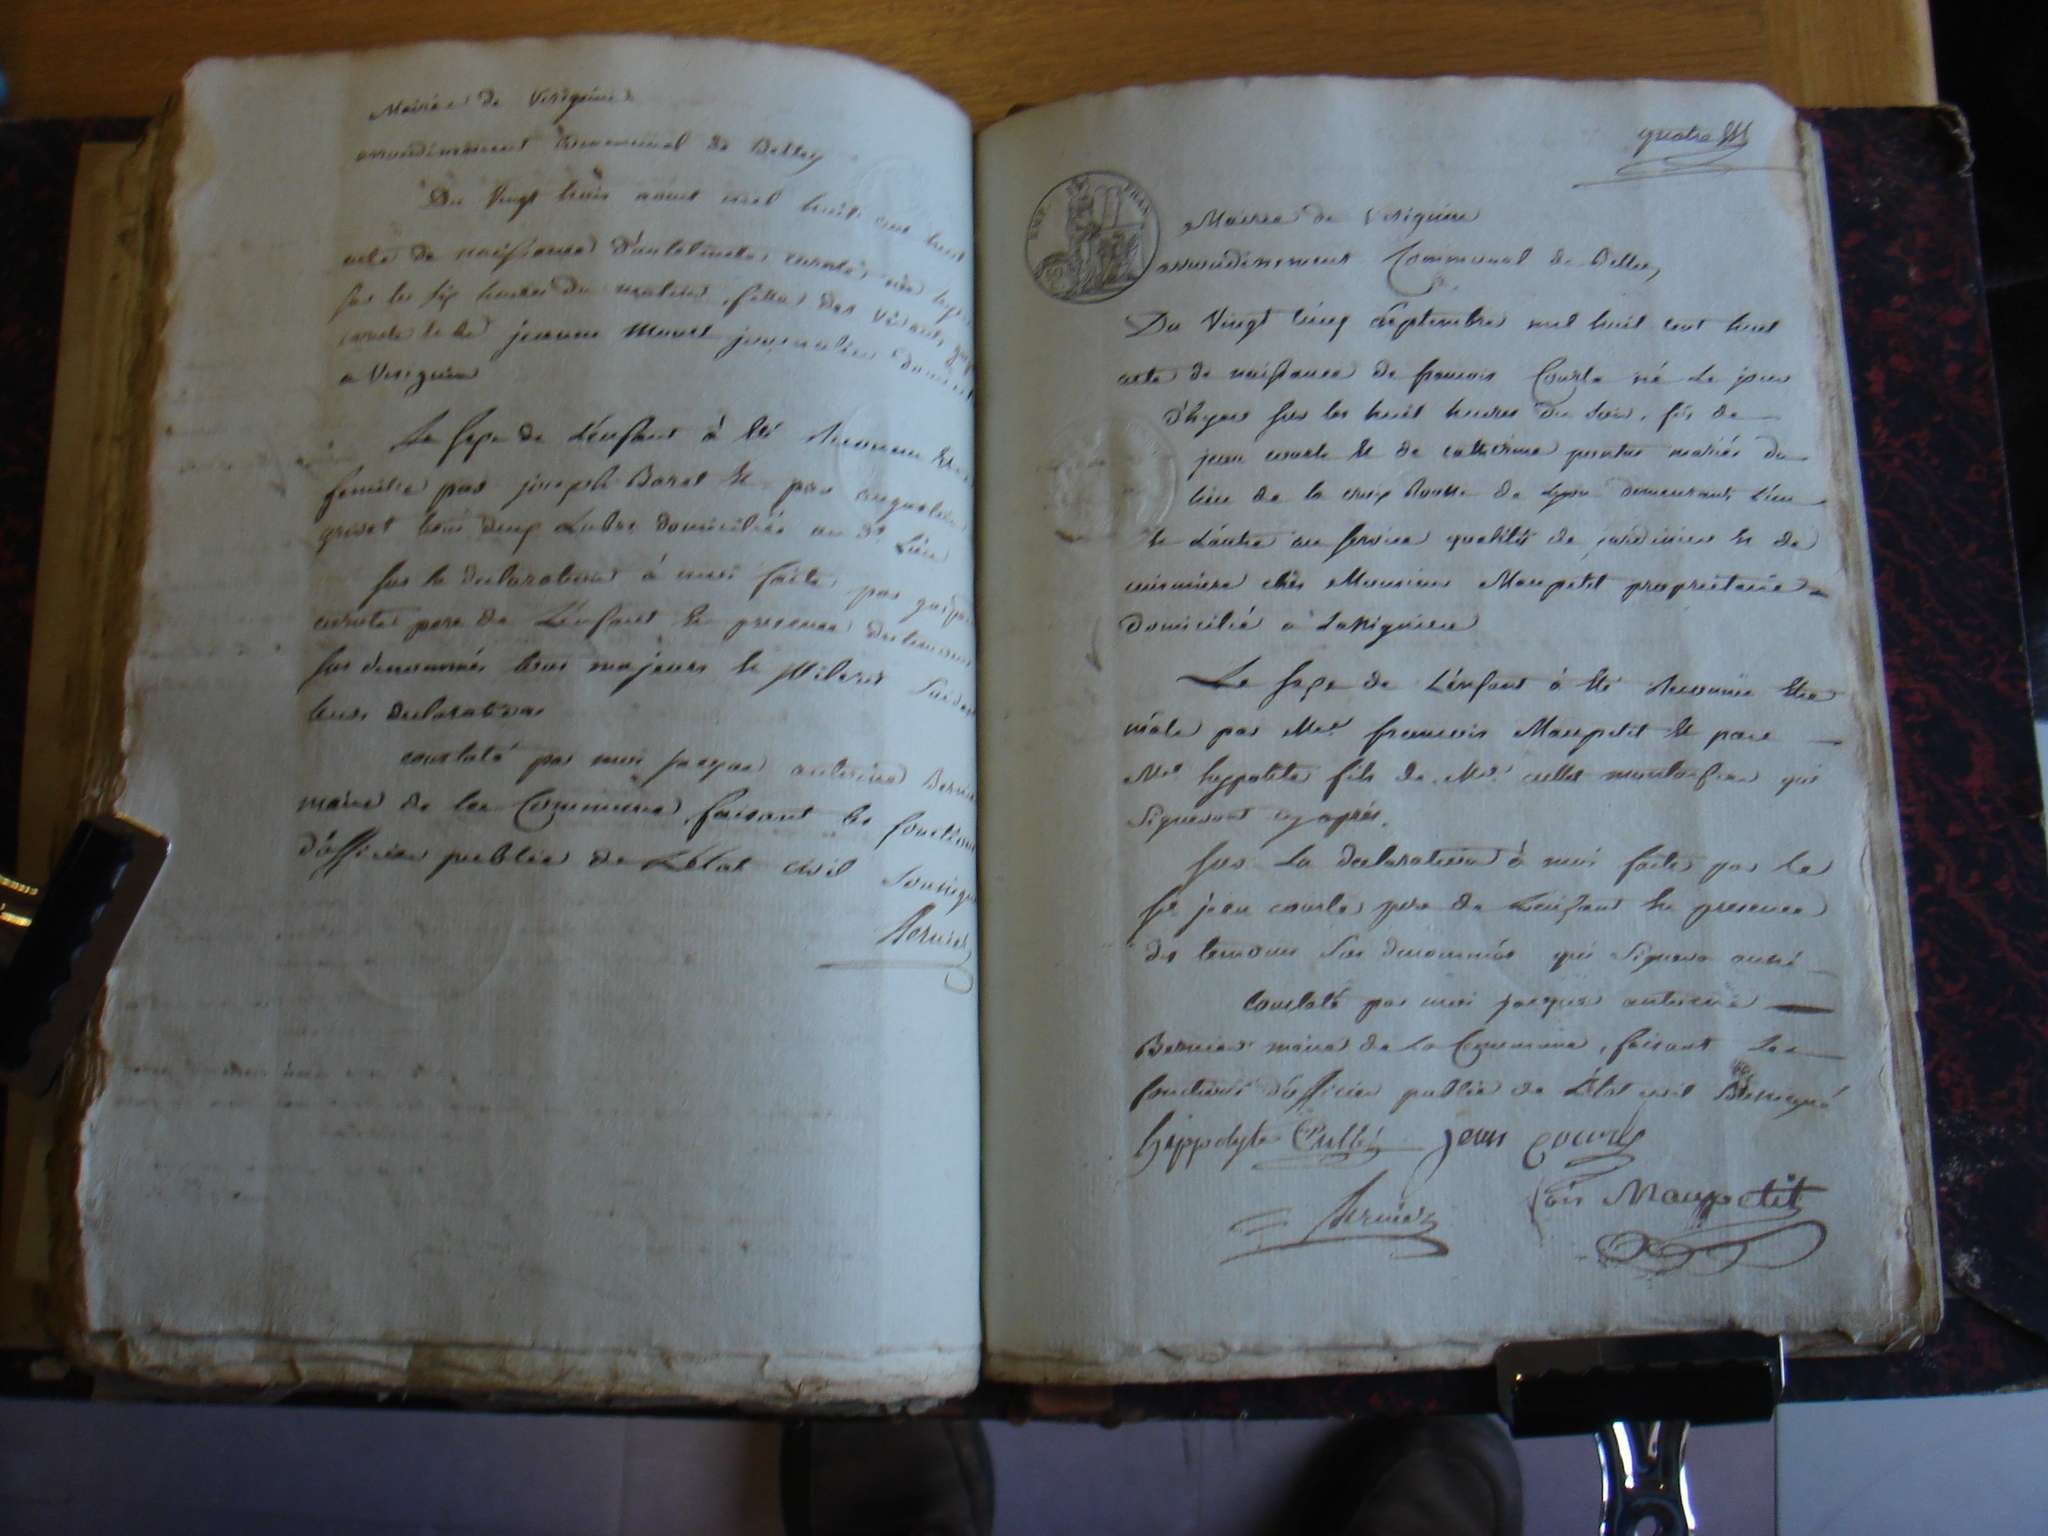 Mairie de Virignin
arrondissement Communal de Belley
Du Vingt trois aoust mil huit cent huit
acte de naissance D'antelmette curate née hyer
sur les six heures du matin, fille des Vivants
jeanne Monet journalier
a Virignin
Le sexe de L'enfant à été reconnu Etre
femelle par joseph Boret et par
tous deux Labrs domiciliés au dt Lieu
sur la declaration à moi faite par
pere de L'enfant en presence des temoins
sus denommés tous majeurs et illiterés
leur declaration
constaté par moi jacque antoine Bernier
maire de la Commune, faisant les fonctions
d'officier public de L'état civil Soussigné
Bernier
quatre
EMP. FRAN.
Mairie de Virignin
arrondissement Communal de Belley
Du Vingt cinq septembre mil huit cent huit
acte de naissance de francois Courte né Le jour
d'hyer sur les huit heures du soir, fils de
jean courte et de catherine mariés du
lieu de la croix Rousse de Lyon demeurants L'un
et L'autre au service qualités de jardinier et de
cuisiniere chés Monsieur Maupetit proprietaire
domicilié a
Le sexe de L'enfant à été reconnu Etre
mâle par Mr. francois Maupetit et par
Mr hyppolite fils de Mr. cullet qui
signeront cy après.
sur La declaration à moi faite par Le
Sr jean courte pere de L'enfant en presence
des temoins sus denommés qui signera aussi
Constaté par moi jacque antoine
Bernier maire de La Commune, faisant Les
fonctions d'officier public de L'État civil Soussigné
hippolyte Cullet jean courte
fois Maupetit
Bernier